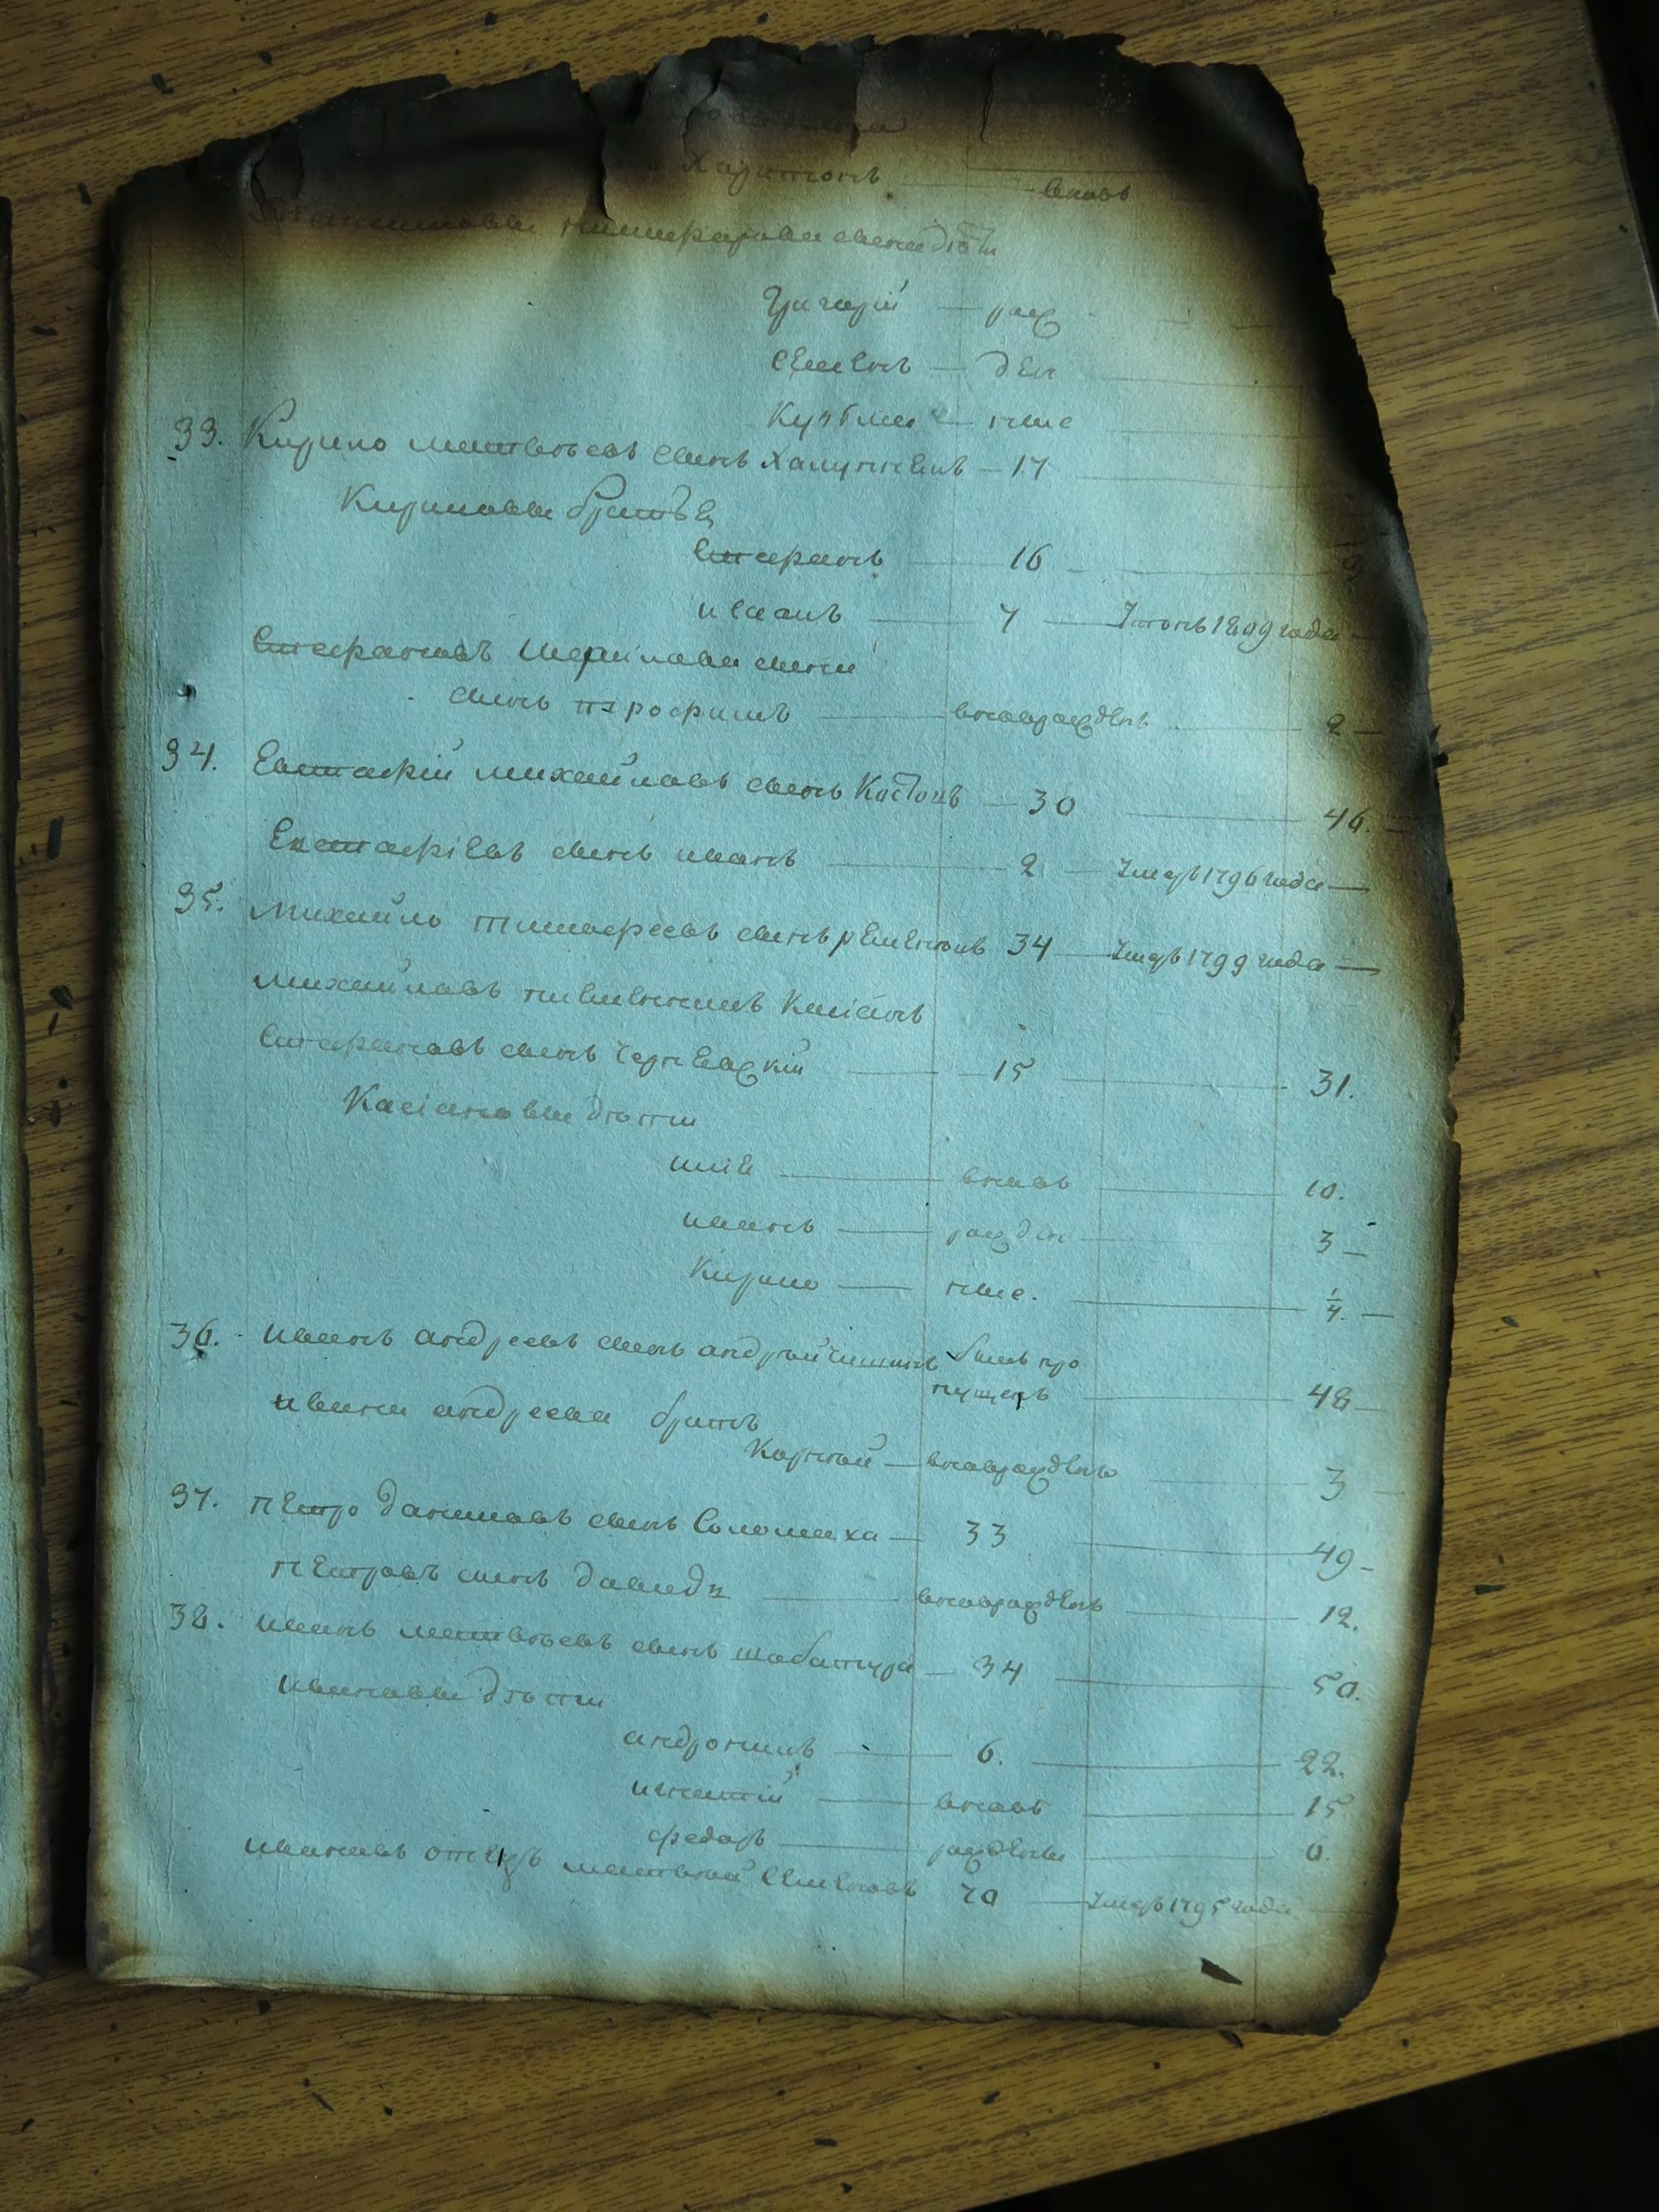 Харитонъ — вновь
никифорова сына дѣти
Григорій — рож
Семенъ — ден
Кузьма — ные
33. Кирило матвѣевъ сынъ — 17
Кириловы братья
Стефанъ — 16
иванъ — 7 — 1809 года —
Стефановъ сына
сынъ трофимъ — вноврожденъ — 2 —
34. Евстафій михайловъ сынъ Костюкъ — 30 — 46. —
Евстафіевъ сынъ иванъ — 2 — Умръ 1796 года —
35. Михайло тимофеевъ сынъ ременюкъ 34 — Умръ 1799 года —
Михайловъ племенникъ Касіанъ
Стефановъ сынъ — 15 — 31.
Касіановы дѣти
илія — вновь — 10.
иванъ — рожден — 3 —
Кирило — ные. — 1/4. —
36. иванъ андреевъ сынъ былъ про
пущенъ — 48 —
ивана андреева братъ
Корнѣй — вноврожденъ — 3 —
37. петро даниловъ сынъ Соломаха — 33 — 49 -
петровъ сынъ давидъ — вноврожденъ — 12.
38. иванъ матвѣевъ сынъ шабатура — 34 — 50.
ивановы дѣти
андроникъ — 6. — 22.
игнатій — вновь — 15
федоръ — рождены — 6.
ивановъ отецъ матвѣй Семеновъ 70 — Умръ 1795 года